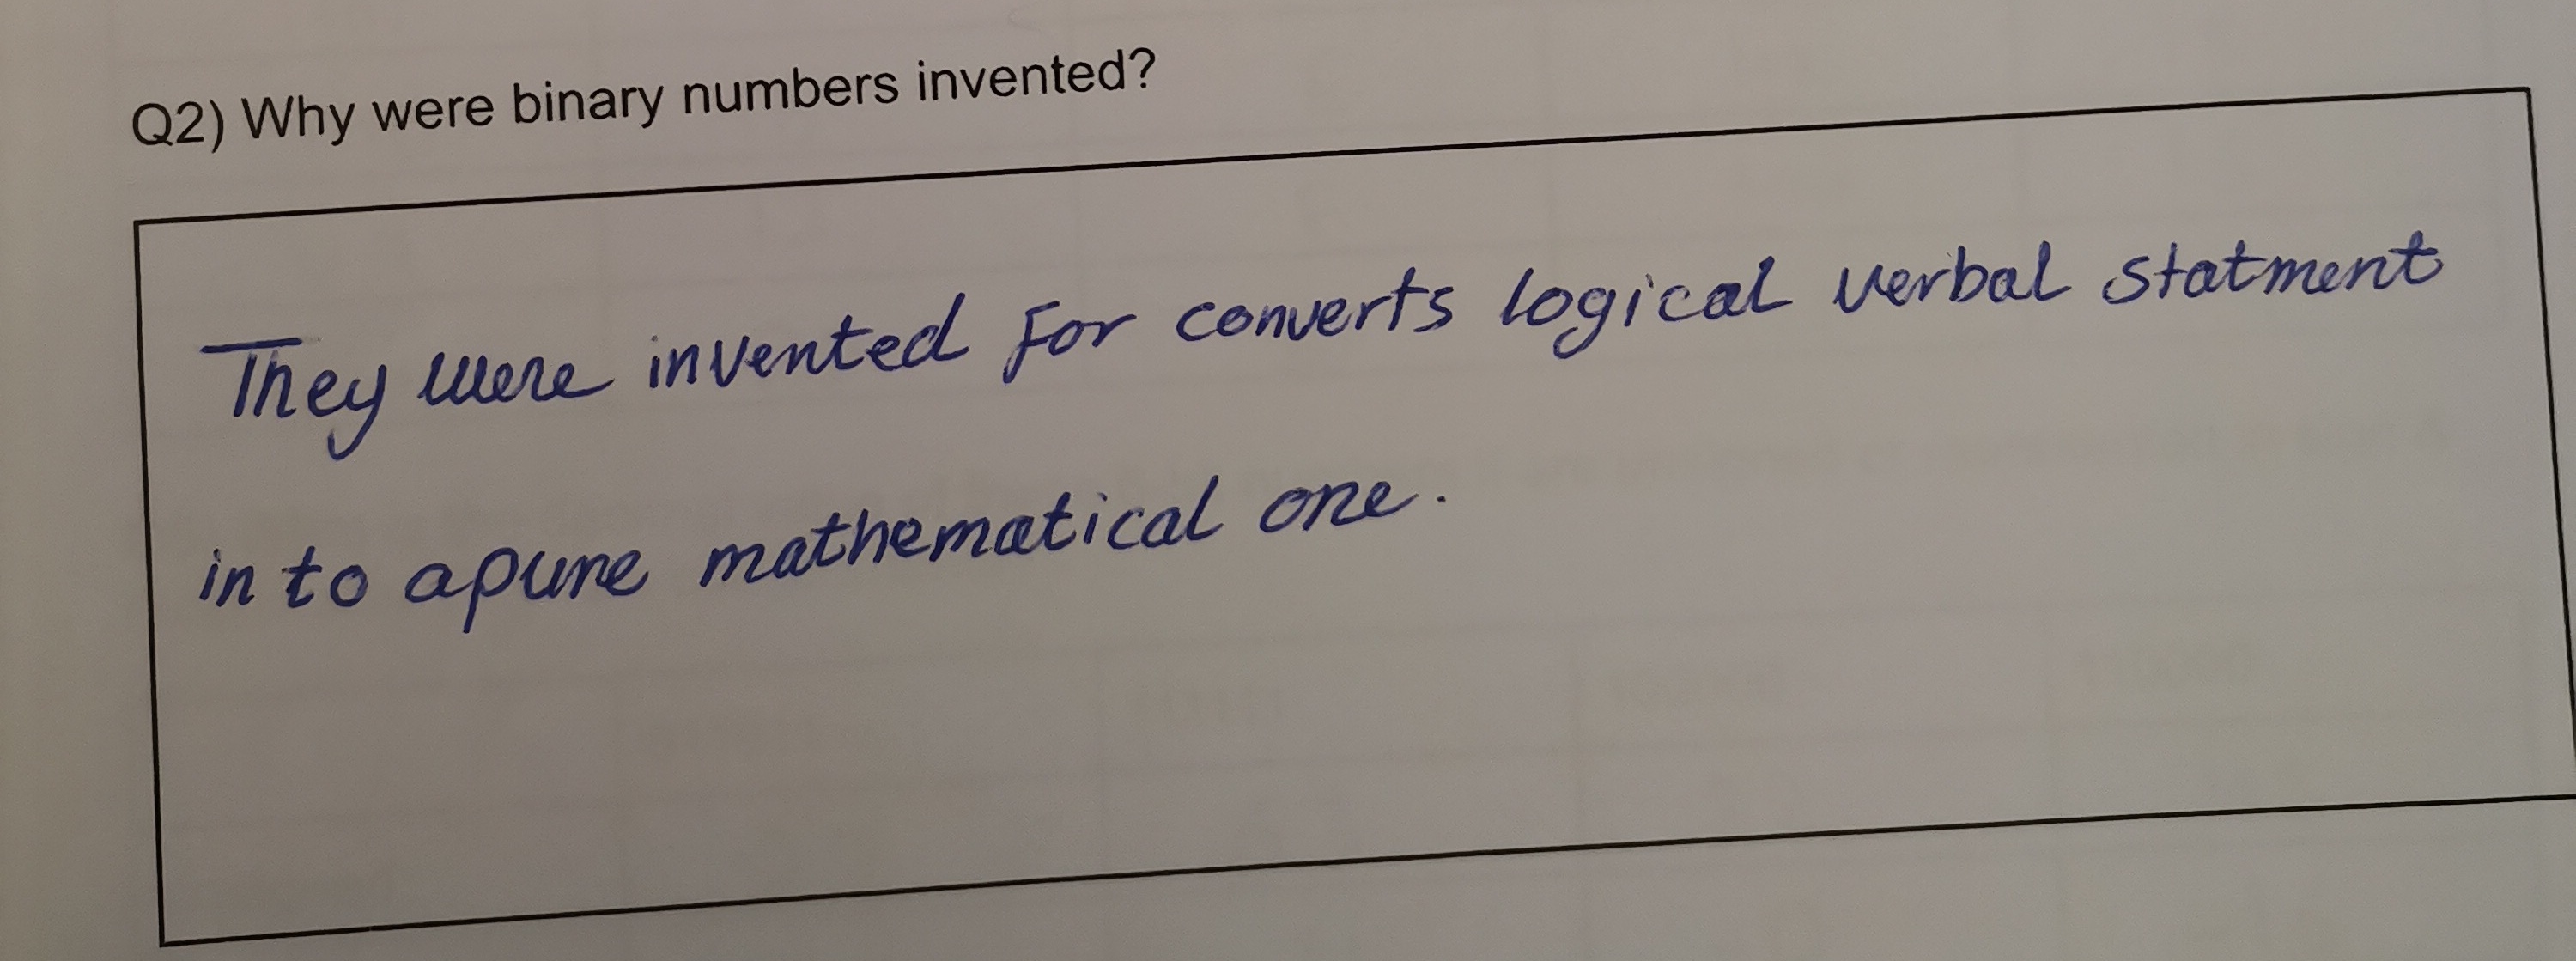 Q2) Why were binary numbers invented?
They were invented for converts logical verbal statment
in to apure mathematical one.